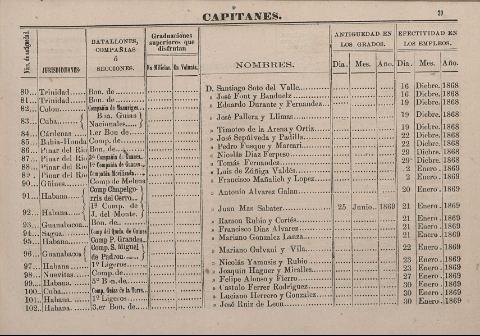 CAPITANES.
39
Núm. de antigüedad.
JURISDICCIONES
BATALLONES, COMPAÑIAS ó SECCIONES.
Graduaciones superiores que disfrutan
En Milicias. En Volunts.
NOMBRES.
ANTIGUEDAD EN LOS GRADOS.
Día. Mes. Año.
EFECTIVIDAD EN LOS EMPLEOS.
Día. Mes. Año.
80... Trinidad Bon. de D. Santiago Soto del Valle 16 Dicbre. 1868
81... Trinidad Bon. de » José Font y 16 Dicbre. 1868
82... Colon » Eduardo Durante y Fernandez 19 Dicbre. 1868
83... Cuba Bon. Guías Nacionales » José Pallera y Llimas 19 Dicbre. 1868
84... Cárdenas 1.er Bon de » Timoteo de la Arena y Ortiz 19 Dicbre. 1868
85... Bahía-Honda Comp. de » José Sepúlveda y Padilla 22 Dicbre. 1868
86... Pinar del Río Bon. de » Pedro Fusque y 22 Dicbre. 1868
87... Pinar del Río » Nicolás Diaz Forpeso 22 Dicbre. 1868
88... Pinar del Río » Tomás Fernandez 29 Dicbre. 1868
89... Pinar del Río » Luis de Zúñiga Valdés 2 Enero 1868
90... Güines Comp de Melena » Francisco Mañalich y Lopez 2 Enero 1868
91... Habana Comp Chapelgorris del Cerro » Antonio Alvarez Galan 20 Enero 1869
92... Habana 1ª Comp. de J. del Monte » Juan Mas Sabater 25 Junio 1869 21 Enero 1869
93... Guanabacoa Bon. de » Ramon Rubio y Cortés 21 Enero. 1869
94... Sagua » Francisco Diaz Alvarez 21 Enero. 1869
95... Habana Comp P. Grandes » Mariano Gonzalez Lanza 21 Enero. 1869
96... Guanabacoa Comp. S. Miguel de Padron » Mariano Galvani y Vila 22 Enero. 1869
97... Habana 1º Ligeros » Nicolás Yamosis y Rubio 23 Enero. 1869
98... Nuevitas Comp. de » Joaquin Haguez y Miralles 23 Enero. 1869
99... Habana 5º Bon. de » Felipe Alonso y Fierro 27 Enero. 1869
100... Cuba » Castulo Ferrer Rodriguez 30 Enero. 1869
101... Habana 1º Ligeros » Luciano Herrero y Gonzalez 30 Enero. 1869
102... Habana 3.er Bon. de » José Ruiz de Leon 30 Enero. 1869